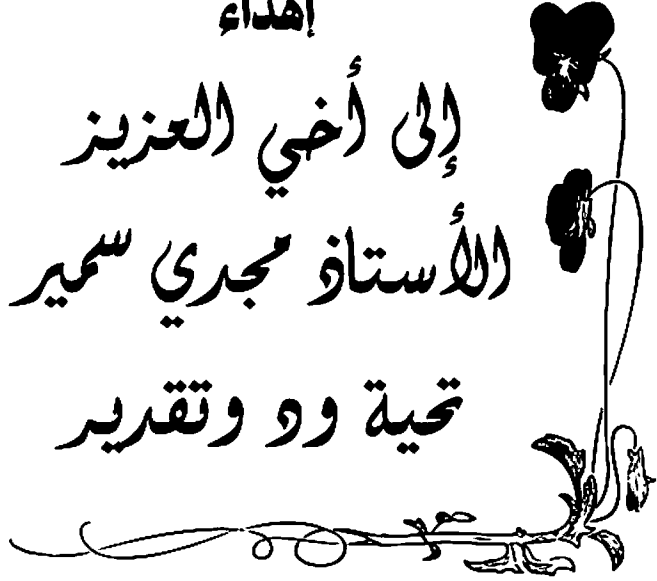 إهداء
إلى أخي العزيز
الأستاذ مجدي سمير
تحية ود وتقدير